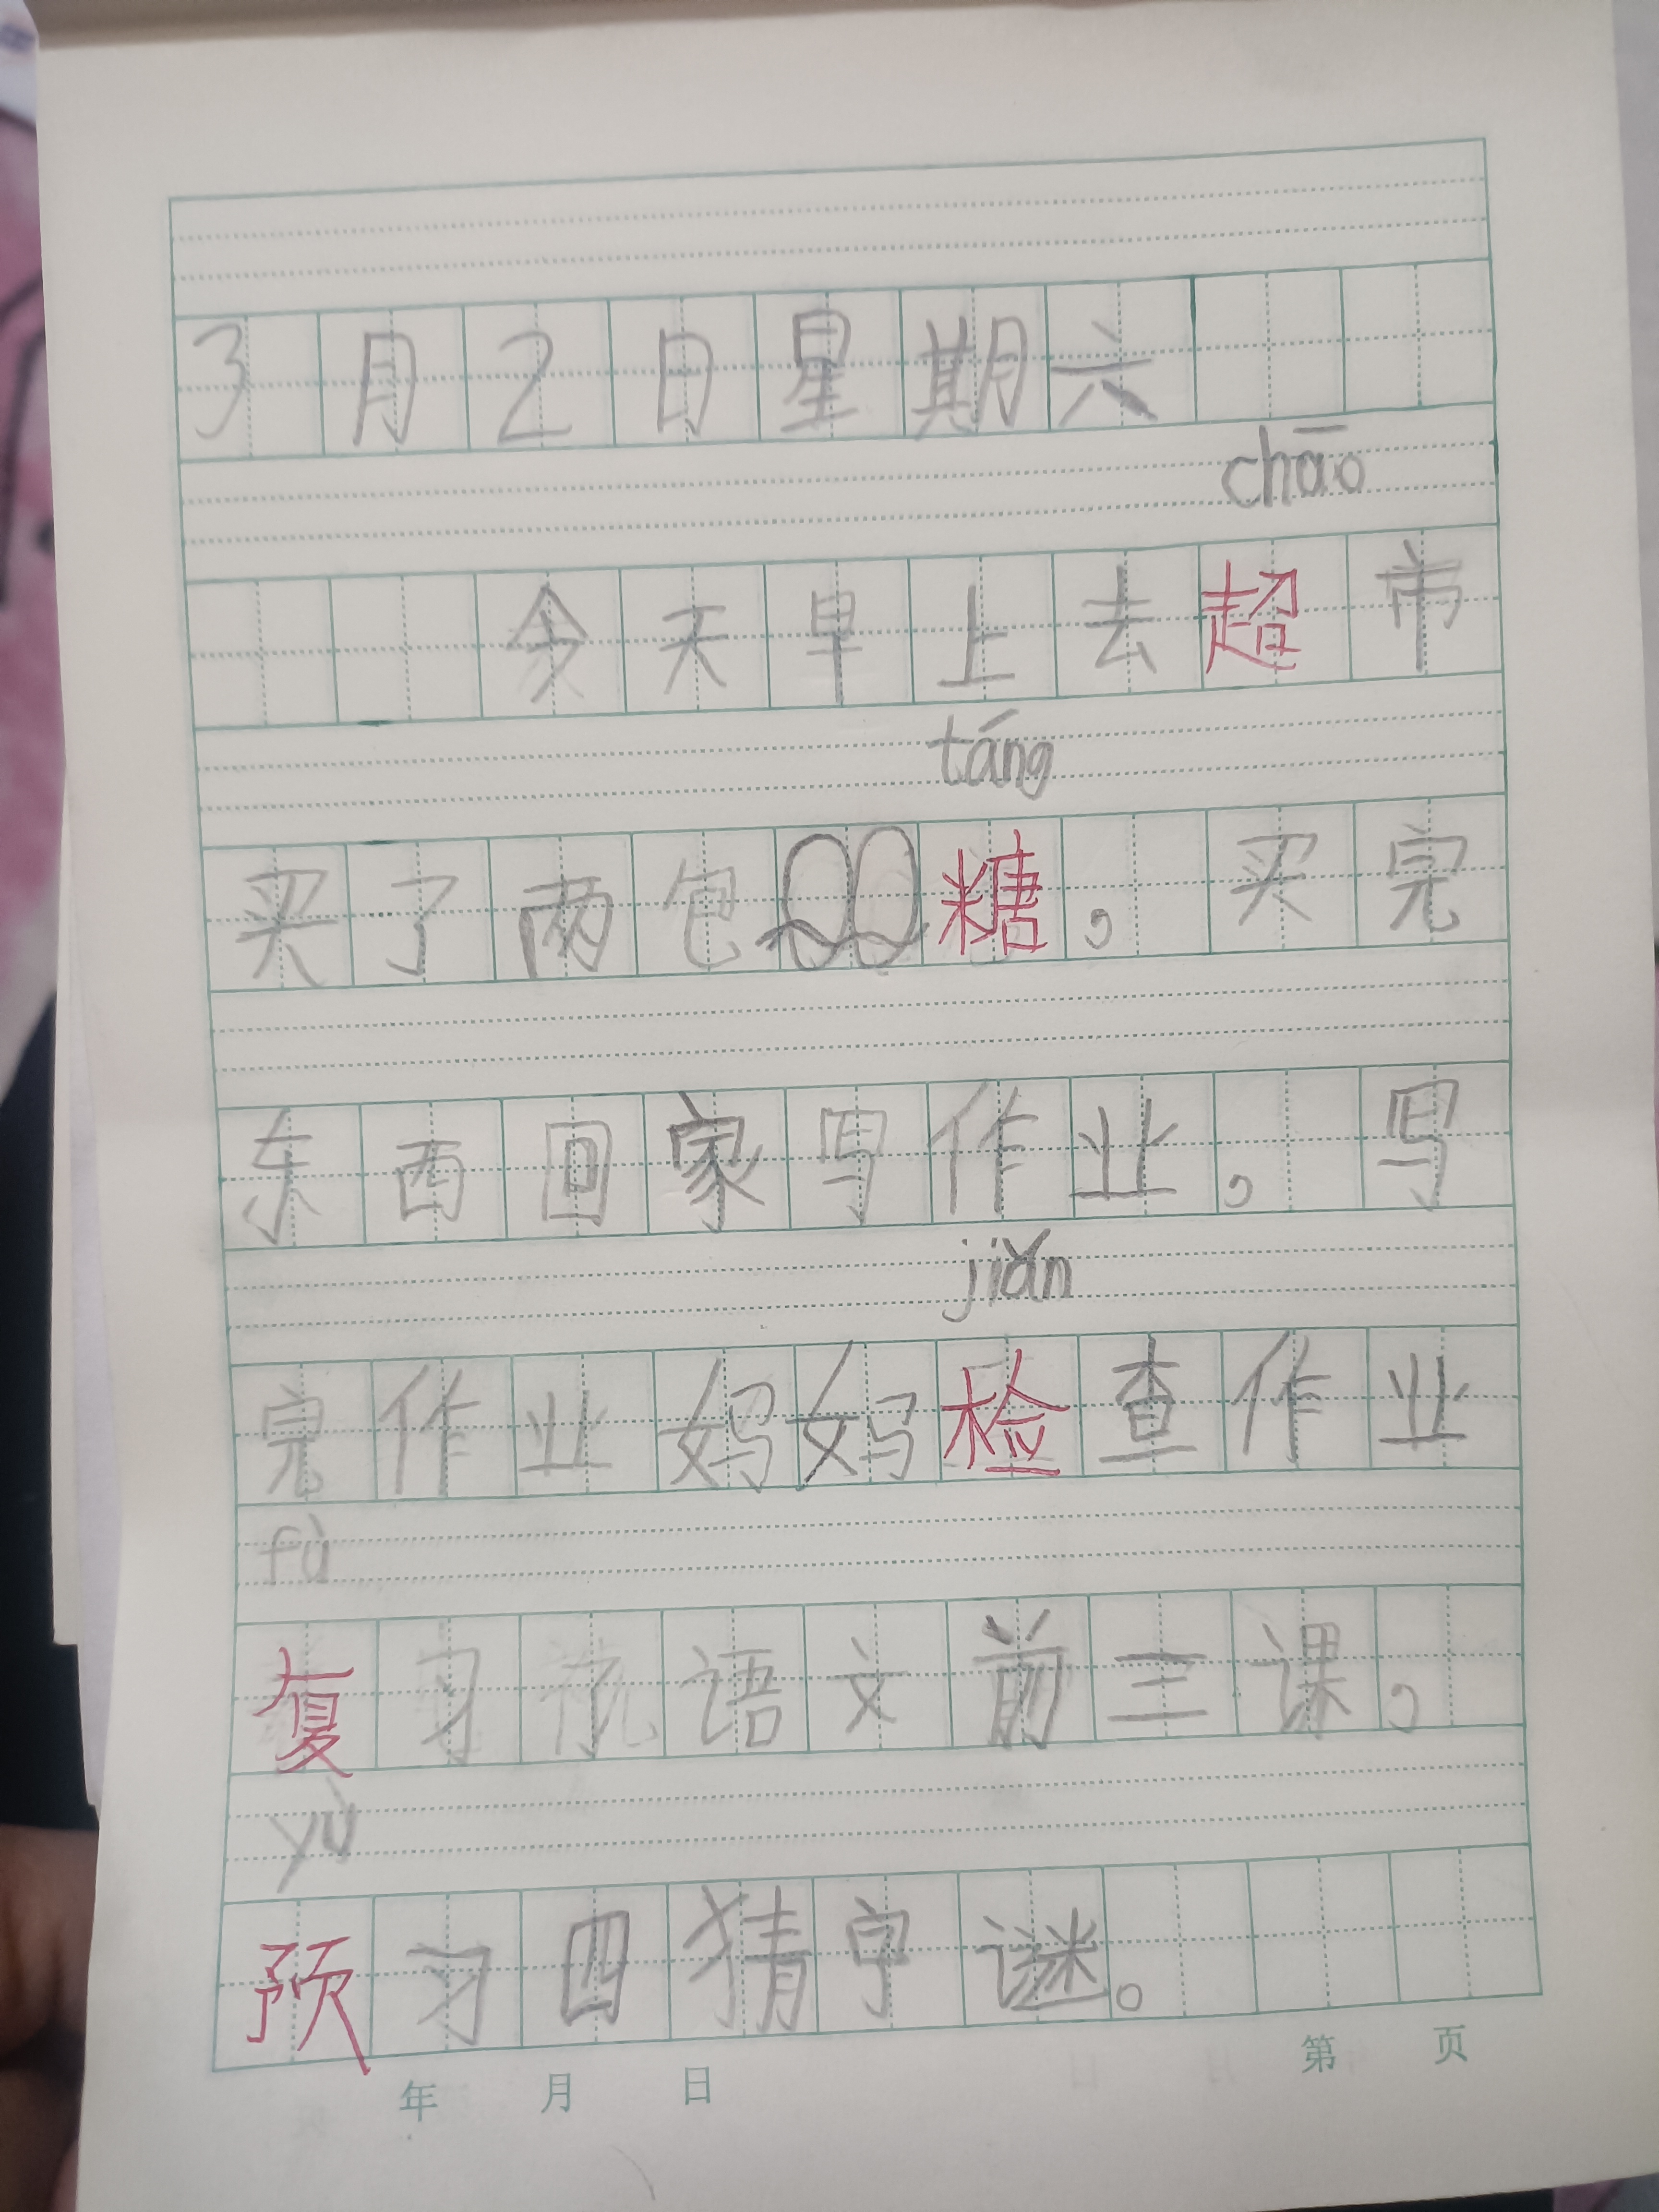 3月2日星期六
chāo
今天早上去超市
táng
买了两包QQ糖，买完
东西回家写作业，写
jiǎn
完作业妈妈检查作业
fù
复习语文前三课，
yù
预习四猜字谜。
年 月 日 第 页